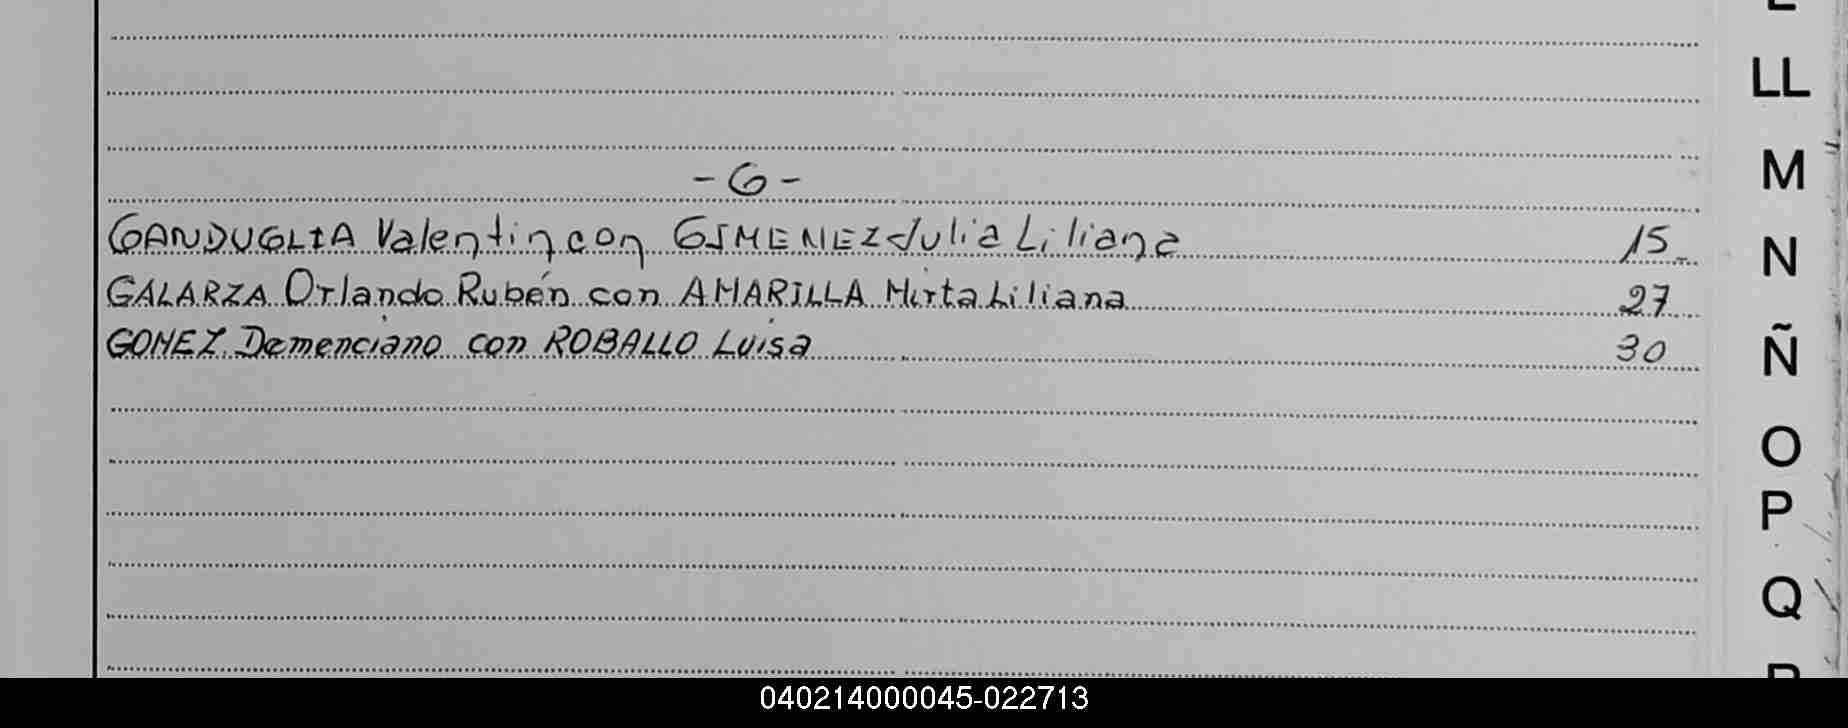 -G-
GANDUGLIA Valentin con GIMENEZ Julia Liliana 15
GALARZA Orlando Rubén con AMARILLA Mirta Liliana 27
GOMEZ Demenciano con ROBALLO Luisa 30
LL
M
N
Ñ
O
P
Q
040214000045-022713